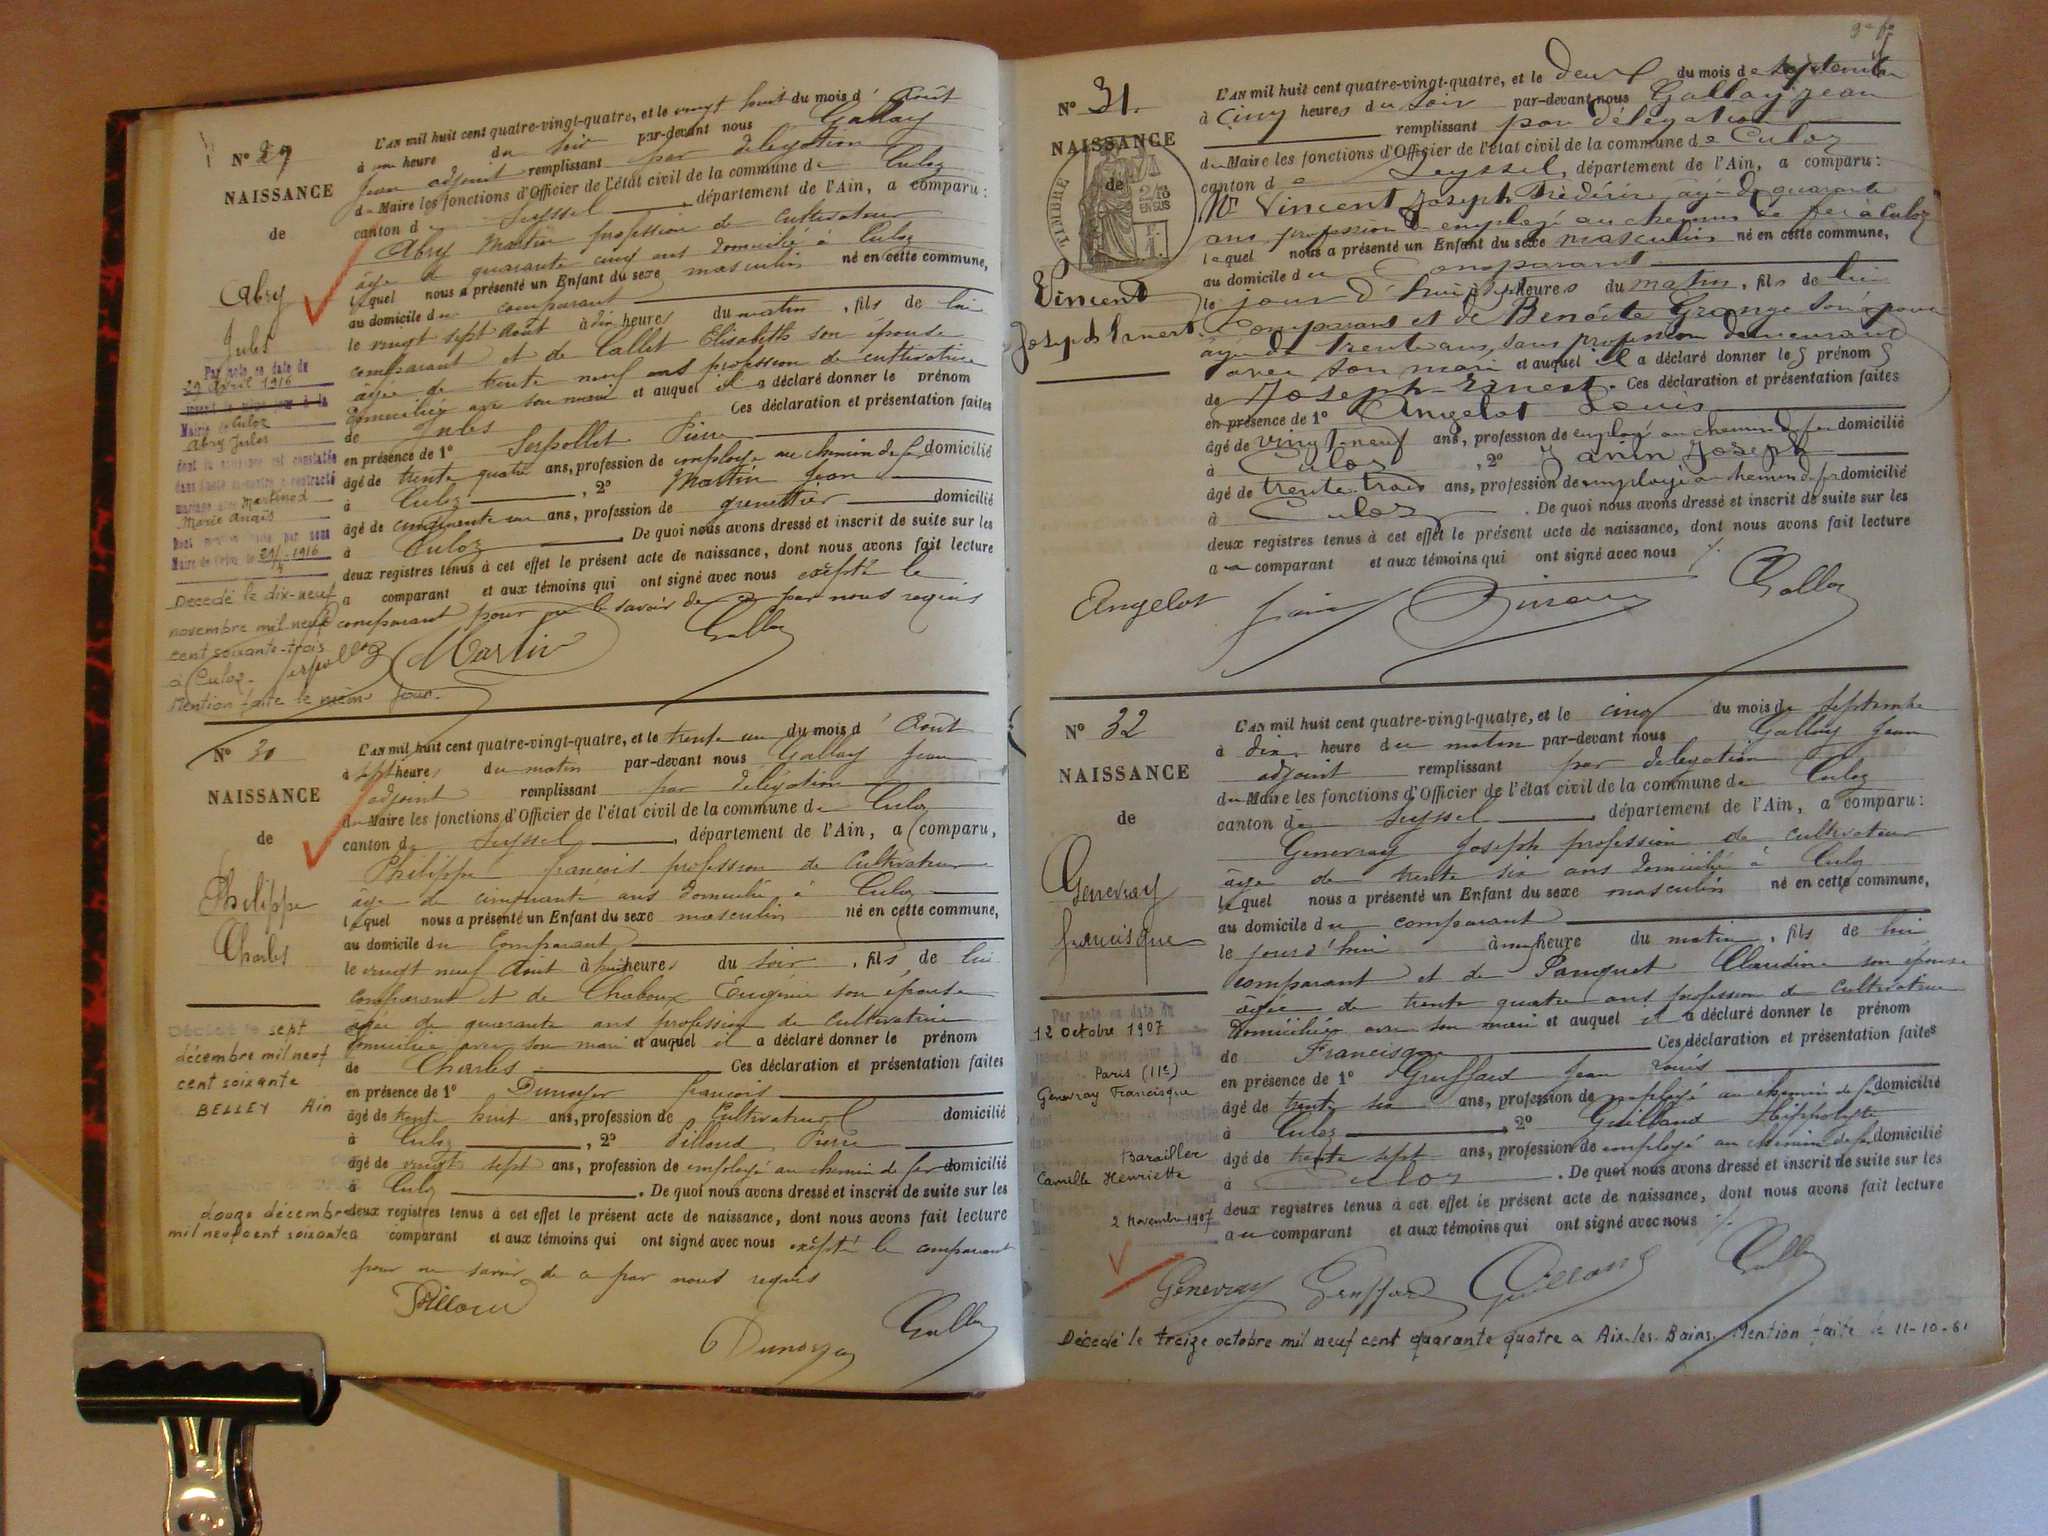 N° 29
NAISSANCE
de
Abry
Jules
Par acte en date du
29 Avril 1916
Mairie de Culoz
Abry Jules
dont la naissance est constatée
dans l'acte ci-contre a contracté
mariage avec Martinod
Marie Anaïs
29/4 1916
Décédé le dix-neuf
novembre mil neuf
cent soixante-trois
à Culoz.
Mention faite le même jour.
L'AN mil huit cent quatre-vingt-quatre, et le vingt huit du mois d'Août
à une heure du soir par-devant nous Gallay
Jean adjoint remplissant par délégation
du Maire les fonctions d'Officier de l'état civil de la commune de Culoz
canton de Seyssel, département de l'Ain, a comparu:
Abry Martin profession de cultivateur
âgé de quarante cinq ans domicilié à Culoz
lequel nous a présenté un Enfant du sexe masculin né en cette commune,
au domicile du comparant
le vingt sept Août à dix heures du matin, fils de lui
comparant et de Callet Elisabeth son épouse
âgée de trente neuf ans profession de cultivatrice
domiciliée avec son mari et auquel il a déclaré donner le prénom
de Jules Ces déclaration et présentation faites
en présence de 1° Serpollet Pierre
âgé de trente quatre ans, profession de employé au chemin de fer domicilié
à Culoz, 2° Martin Jean
âgé de cinquante un ans, profession de grenettier domicilié
à Culoz. De quoi nous avons dressé et inscrit de suite sur les
deux registres tenus à cet effet le présent acte de naissance, dont nous avons fait lecture
a comparant et aux témoins qui ont signé avec nous exépté le
comparant pour ne le savoir de ce par nous requis
Serpollet Martin Gallay
N° 30
NAISSANCE
de
Philippe
Charles
Décédé le sept
décembre mil neuf
cent soixante
BELLEY Ain
douze décembre
mil neuf cent soixante
L'AN mil huit cent quatre-vingt-quatre, et le trente un du mois d'Août
à sept heures du matin par-devant nous Gallay Jean
adjoint remplissant par délégation
du Maire les fonctions d'Officier de l'état civil de la commune de Culoz
canton de Seyssel, département de l'Ain, a comparu,
Philippe françois profession de Cultivateur
âgé de cinquante ans domicilié à Culoz
lequel nous a présenté un Enfant du sexe masculin né en cette commune,
au domicile du Comparant
le vingt neuf Août à huit heures du soir, fils de lui
comparant et de Chaboux Eugénie son épouse
âgée de quarante ans profession de cultivatrice
domiciliée avec son mari et auquel il a déclaré donner le prénom
de Charles Ces déclaration et présentation faites
en présence de 1° Dunoyer françois
âgé de trente huit ans, profession de Cultivateur domicilié
à Culoz, 2° Pilloud Pierre
âgé de vingt sept ans, profession de employé au chemin de fer domicilié
à Culoz. De quoi nous avons dressé et inscrit de suite sur les
deux registres tenus à cet effet le présent acte de naissance, dont nous avons fait lecture
a comparant et aux témoins qui ont signé avec nous exépté le comparant
pour ne savoir de ce par nous requis
Pilloud
Dunoyer Gallay
N° 31.
NAISSANCE
de
TIMBRE
2/10 EN SUS
Vincent
Joseph Ernest
L'AN mil huit cent quatre-vingt-quatre, et le deux du mois de septembre
à cinq heures du soir par-devant nous Gallay Jean
remplissant par délégation
du Maire les fonctions d'Officier de l'état civil de la commune de Culoz
canton de Seyssel, département de l'Ain, a comparu:
Mr Vincent Joseph Frédéric âgé de quarante
ans profession d'employé au chemin de fer à Culoz
lequel nous a présenté un Enfant du sexe masculin né en cette commune,
au domicile du Comparant
le jour d'hui à heures du matin, fils de lui
Comparant et de Benoîte Grange son épouse
âgée de trente ans, sans profession demeurant
avec son mari et auquel il a déclaré donner les prénoms
de Joseph-Ernest. Ces déclaration et présentation faites
en présence de 1° Angelot Louis
âgé de vingt-neuf ans, profession de employé au chemin de fer domicilié
à Culoz, 2° Janin Joseph
âgé de trente-trois ans, profession de employé au chemin de fer domicilié
à Culoz. De quoi nous avons dressé et inscrit de suite sur les
deux registres tenus à cet effet le présent acte de naissance, dont nous avons fait lecture
au comparant et aux témoins qui ont signé avec nous
Angelot Janin Vincent Gallay
N° 32
NAISSANCE
de
Genevray
francisque
Par acte en date du
12 octobre 1907
Paris (11e)
Genevray Francisque
Barailler
Camille Henriette
2 Novembre 1907
L'AN mil huit cent quatre-vingt-quatre, et le cinq du mois de septembre
à dix heure du matin par-devant nous Gallay Jean
adjoint remplissant par délégation
du Maire les fonctions d'Officier de l'état civil de la commune de Culoz
canton de Seyssel, département de l'Ain, a comparu:
Genevray Joseph profession de cultivateur
âgé de trente six ans domicilié à Culoz
lequel nous a présenté un Enfant du sexe masculin né en cette commune,
au domicile du comparant
le jourd'hui à une heure du matin, fils de lui
comparant et de Panquet Claudine son épouse
âgée de trente quatre ans profession de cultivatrice
domiciliée avec son mari et auquel il a déclaré donner le prénom
de Francisque Ces déclaration et présentation faites
en présence de 1° Gruffard Jean Louis
âgé de trente six ans, profession de employé au chemin de fer domicilié
à Culoz, 2° Guilland Hippolyte
âgé de trente sept ans, profession de employé au chemin de fer domicilié
à Culoz. De quoi nous avons dressé et inscrit de suite sur les
deux registres tenus à cet effet le présent acte de naissance, dont nous avons fait lecture
au comparant et aux témoins qui ont signé avec nous
Genevray Gruffard Guilland Gallay
Décédé le treize octobre mil neuf cent quarante quatre à Aix-les-Bains. Mention faite le 11-10-61